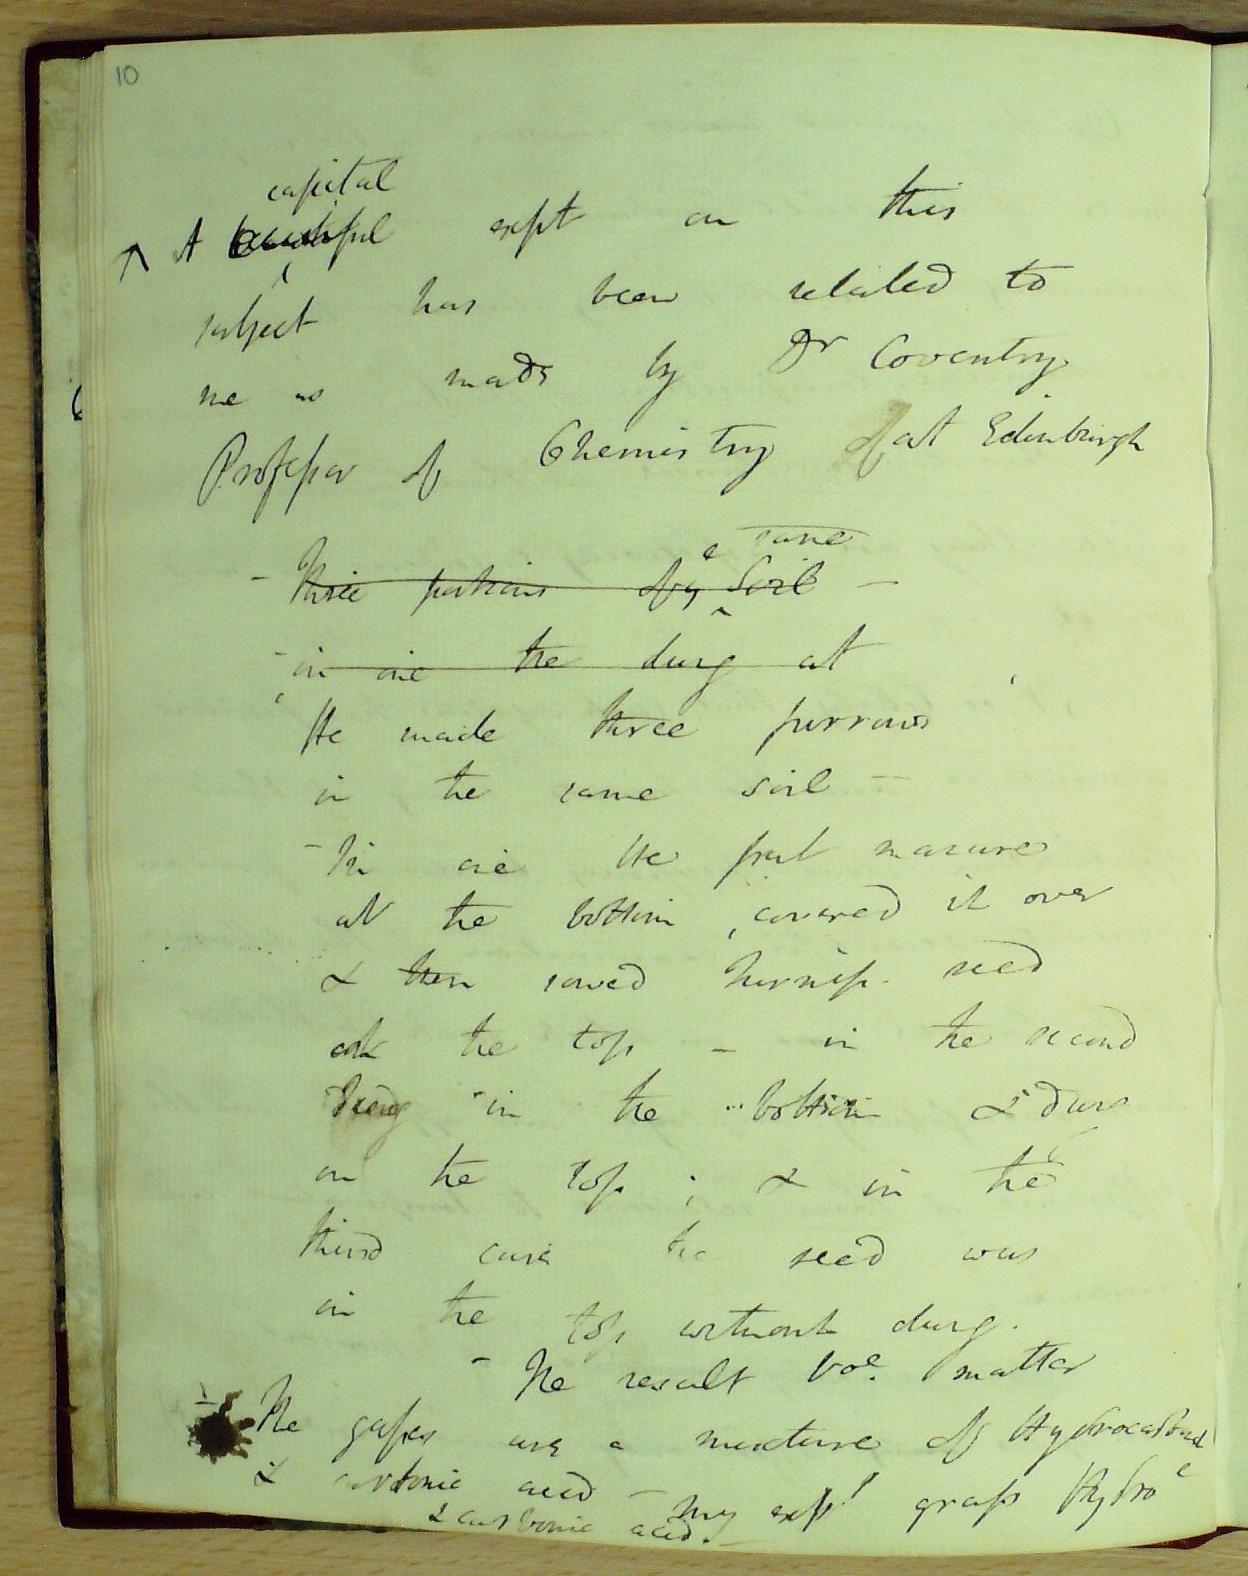 10
capital
A beautiful expt on this
subject has been related to
me as made by Dr Coventry
Professor of Chemistry of at Edinburgh
- Three portions of ye same Soil -
- in one the dung at
He made three furrows
in the same soil -
- In one He put manure
at the bottom, covered it over
& then sowed turnip seed
at the top - in the second
Dung in the bottom & dung
on the top ; & in the
third case the seed was
in the top without dung.
- The result Vble. matter
- The gases are a mixture of Hydrocarbonate
& carbonic acid - My expts! grass Hydroe
& carbonic acid. -